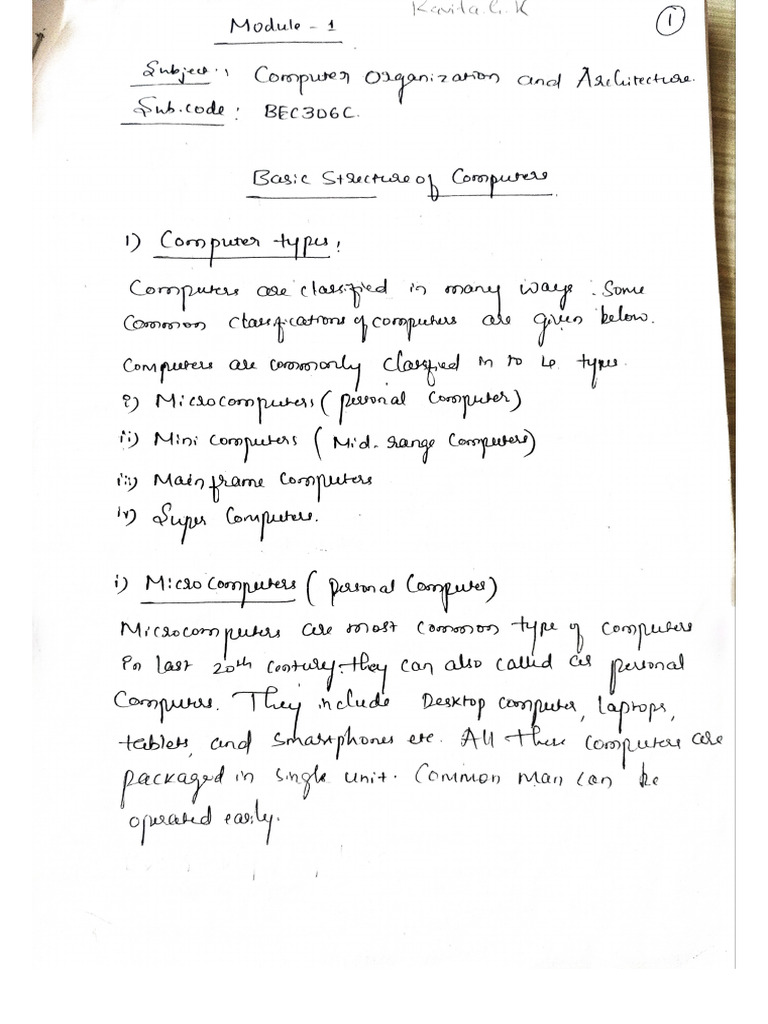 Kavita.G.K
1
Module - 1
Subject: Computer Organization and Architecture.
Sub.code: BEC306C.
Basic Structure of Computers
1) Computer types:
Computers are classified in many ways. Some
common classifications of computers are given below.
Computers are commonly classified in to 4 types.
i) Microcomputers (personal computer)
ii) Mini computers (Mid-range computers)
iii) Mainframe computers
iv) Super Computers.
i) Microcomputers (personal Computer)
Microcomputers are most common type of computers
in last 20th century. they can also called as personal
Computers. They include Desktop computer, laptops,
tablets, and smartphones etc. All these computers are
packaged in single unit. Common man can be
operated easily.